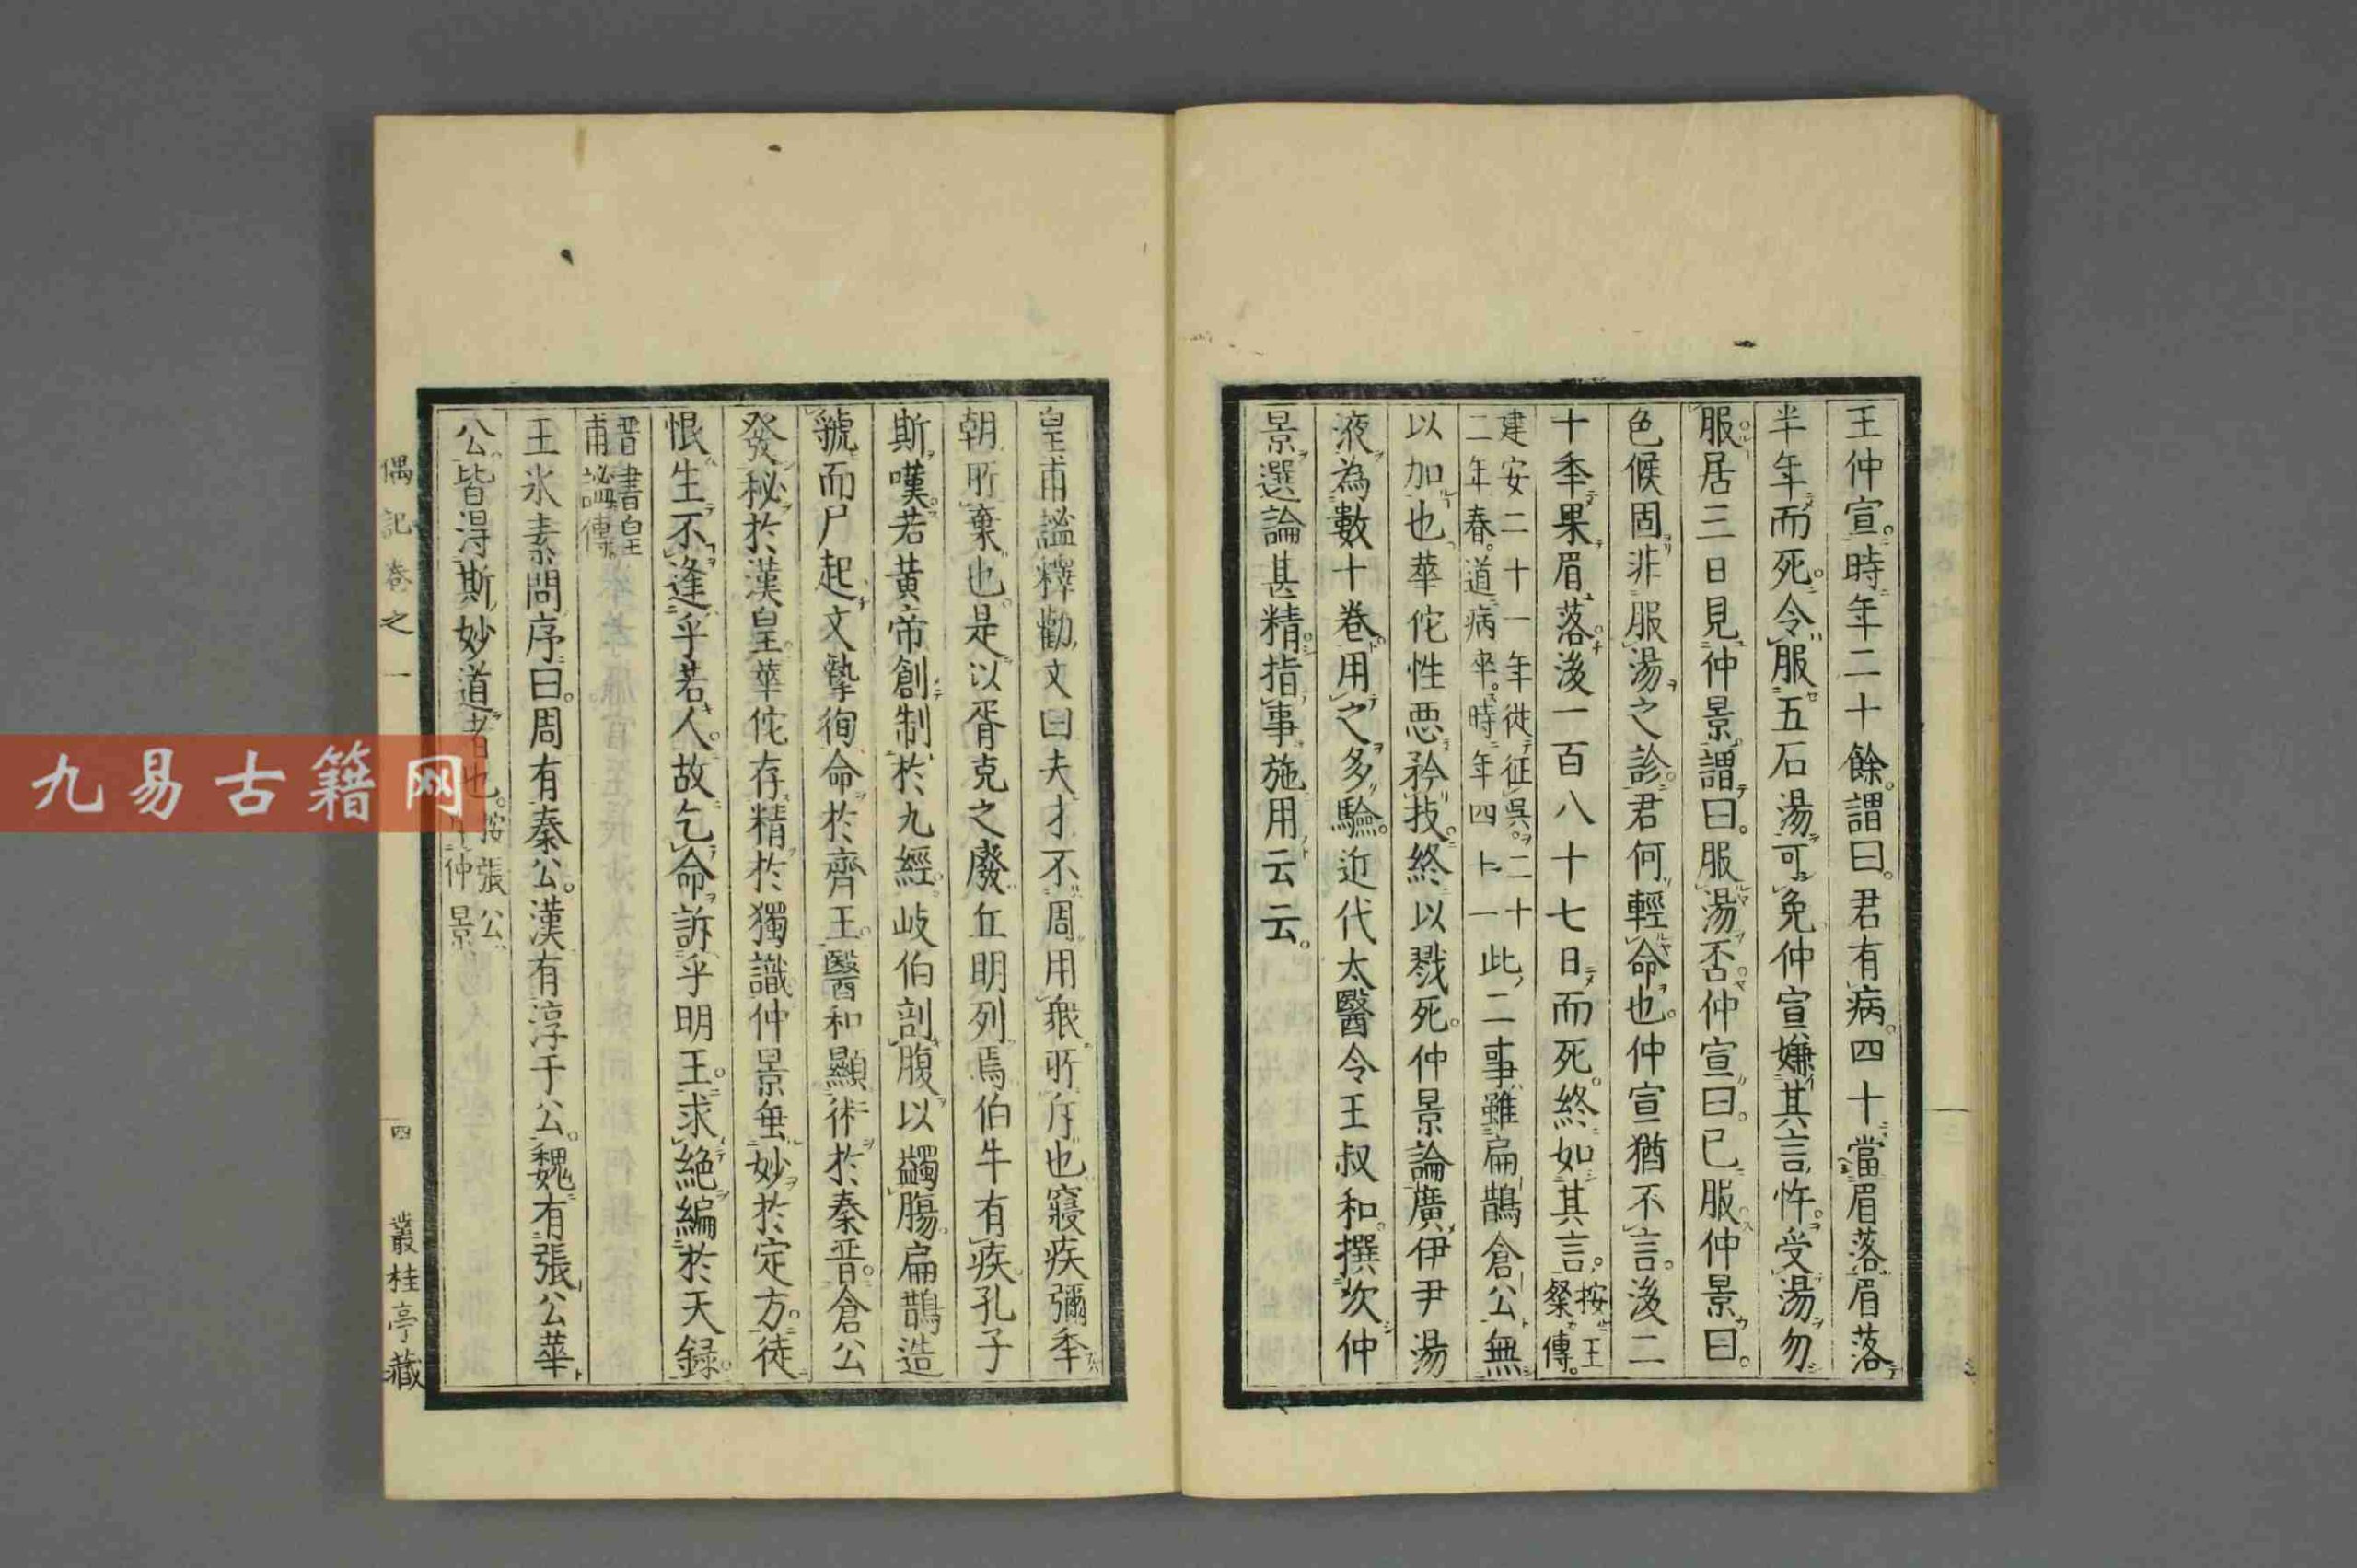 王仲宣。時年二十餘。謂曰。君有病。四十當眉落眉落
半年而死。令服五石湯可免仲宣嫌其言忤。受湯勿
服。居三日見仲景。謂曰。服湯否。仲宣曰。已服仲景曰。
色候固非服湯之診。君何輕命也。仲宣猶不言。後二
十秊果眉落。後一百八十七日而死。終如其言。按王
粲傳。
建安二十一年從征吳。二十
二年春。道病卒。時年四十一此二事雖扁鵲倉公無
以加也華佗性惡矜技。終以戮死。仲景論廣伊尹湯
液為數十卷用之多驗。近代太醫令王叔和撰次仲
景選論甚精指事施用云云。
皇甫謐釋勸文曰夫才不周用衆所斥也寢疾彌秊
朝所棄也。是以胥克之廢丘明列焉伯牛有疾孔子
斯嘆。若黃帝創制於九經岐伯剖腹以蠲腸扁鵲造
虢而尸起文摯徇命於齊王。醫和顯術於秦晋。倉公
發秘於漢皇華佗存精於獨識仲景垂妙於定方。徒
恨生不逢乎若人。故乞命訴乎明王。求絕編於天録。
晋書皇
甫謐傳
王氷素問序曰。周有秦公。漢有淳于公。魏有張公華
公皆得斯妙道者也。按張公
仲景
偶記卷之一 四 叢桂亭藏
九易古籍网